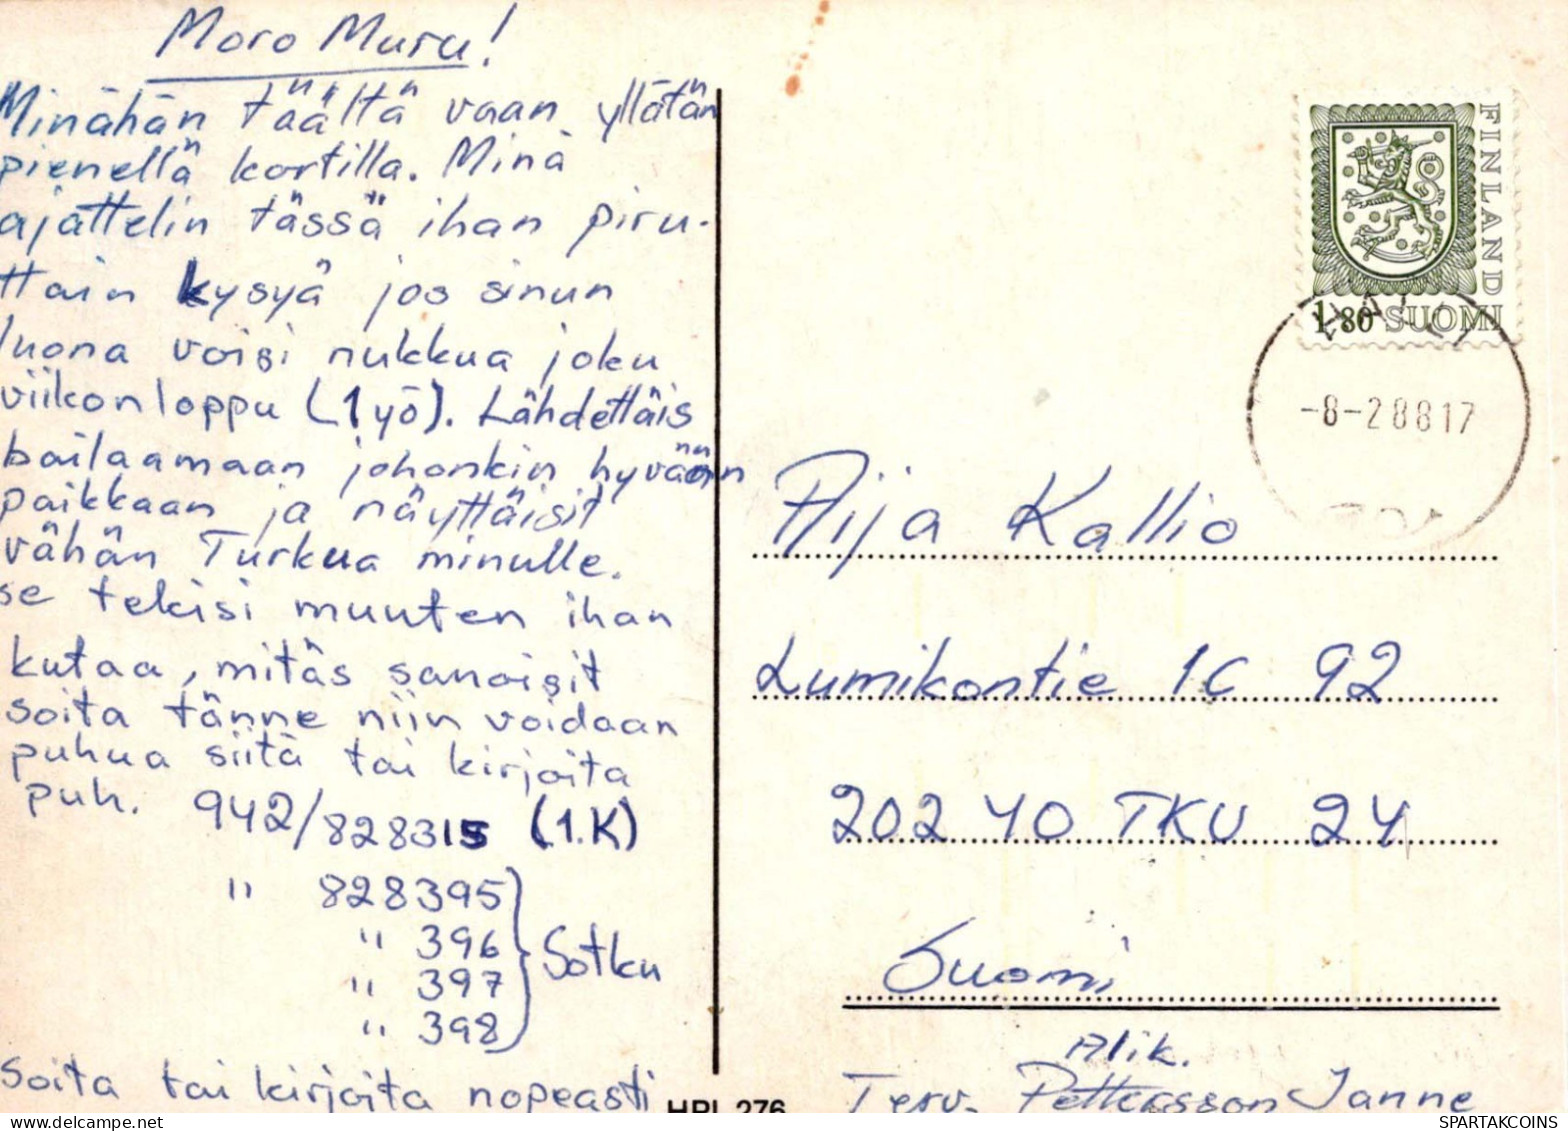 Moro Muru!
Minähän täältä vaan yllätän
pienellä kortilla. Minä
ajattelin tässä ihan piru-
ttain kysyä jos sinun
luona voisi nukkua joku
viikonloppu (1 yö). Lähdettäis
bailaamaan johonkin hyvään
paikkaan ja näyttäisit
vähän Turkua minulle.
se tekisi muuten ihan
kutaa, mitäs sanoisit
soita tänne niin voidaan
puhua siitä tai kirjoita
puh. 942/828315 (1.K)
" 828395
" 396
" 397
" 398
Sotku
Soita tai kirjoita nopeasti
HPL 276
FINLAND
1,80 SUOMI
-8-28817
Aija Kallio
Lumikontie 1C 92
20240 TKU 24
Suomi
Alik.
Terv. Pettersson Janne
SPARTAKCOINS
www.delcampe.net